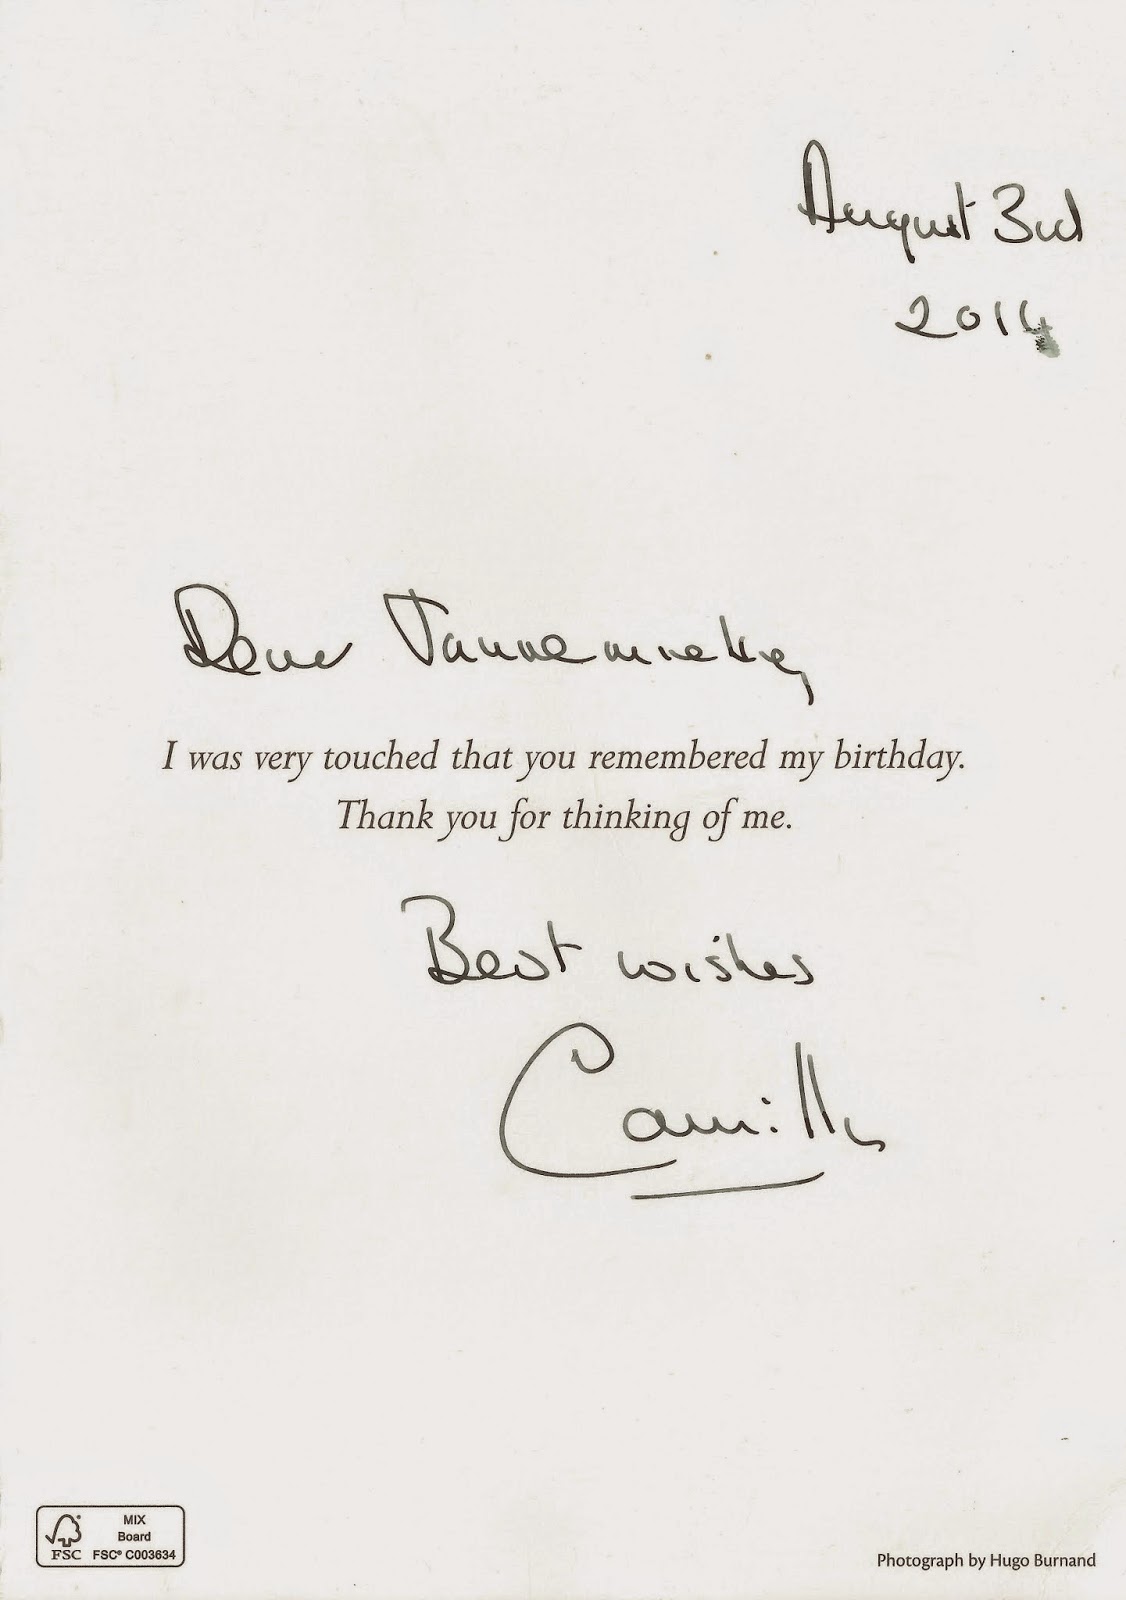 August 3rd
2014
Dear
I was very touched that you remembered my birthday.
Thank you for thinking of me.
Best wishes
Camilla
MIX
Board
FSC FSC® C003634
Photograph by Hugo Burnand